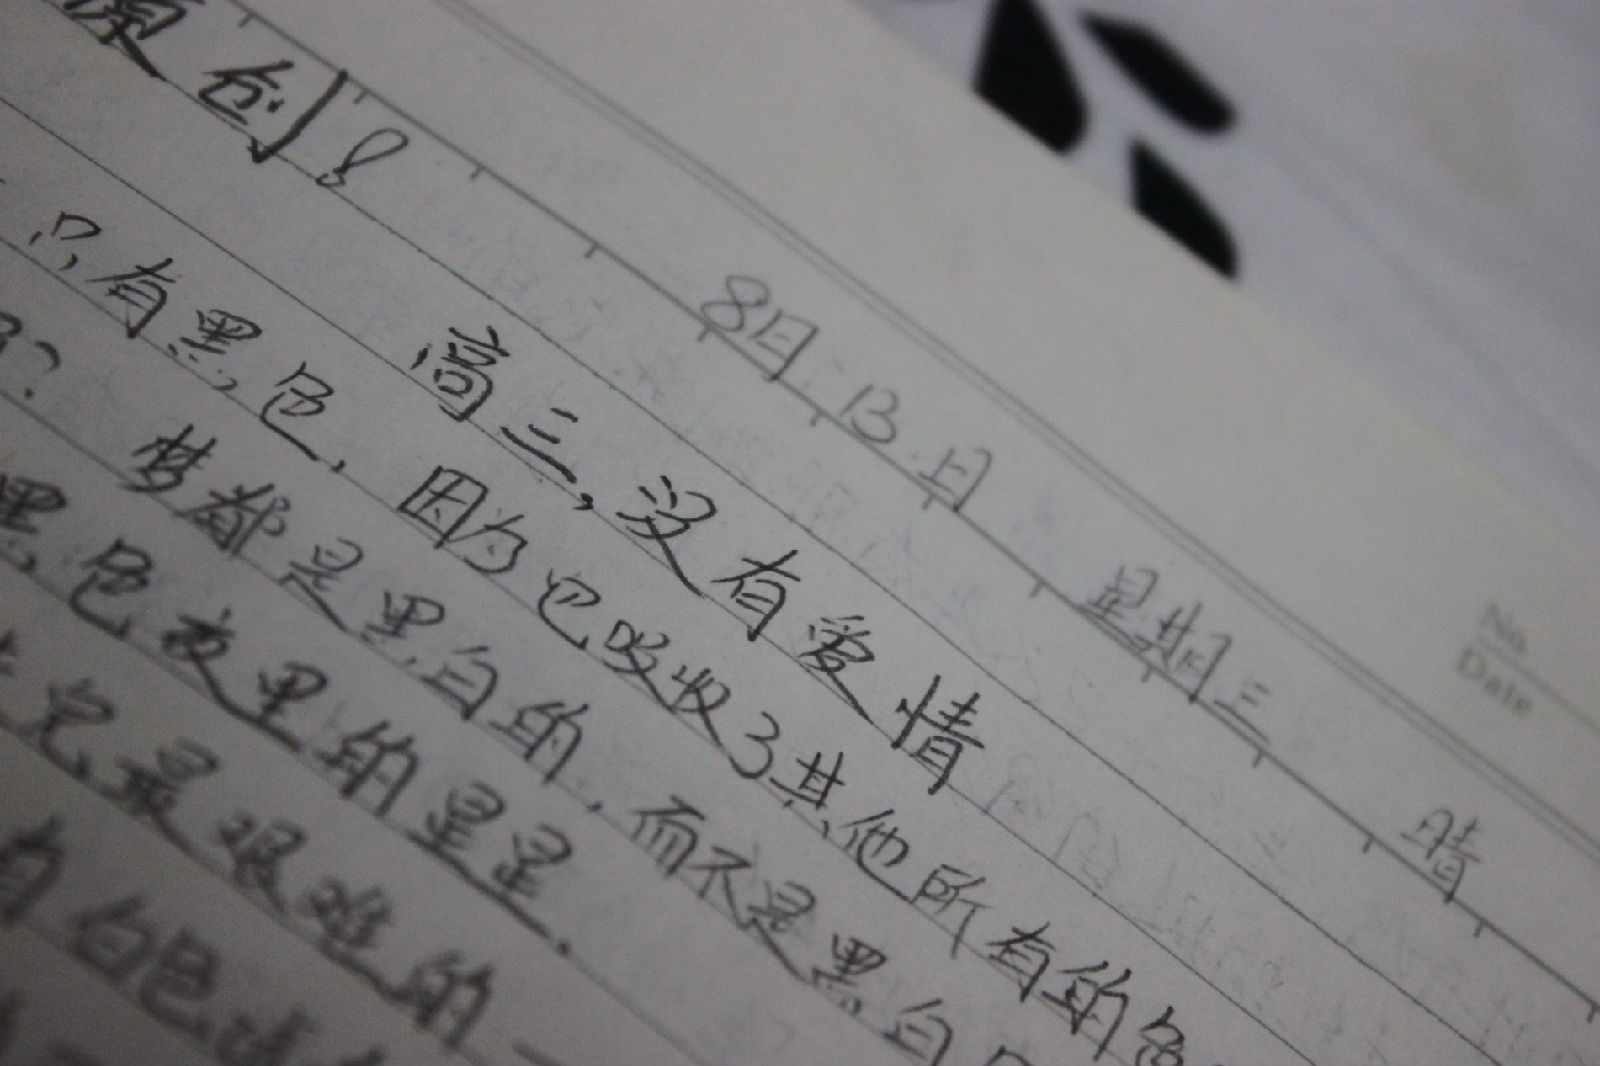 原创！
8月13日 星期三 晴
No.
Date
高三，没有爱情
只有黑色，因为它吸收了其他所有的色
？梦都是黑白的，而不是黑白
黑色夜里的星星．
完最艰难的一
有白色